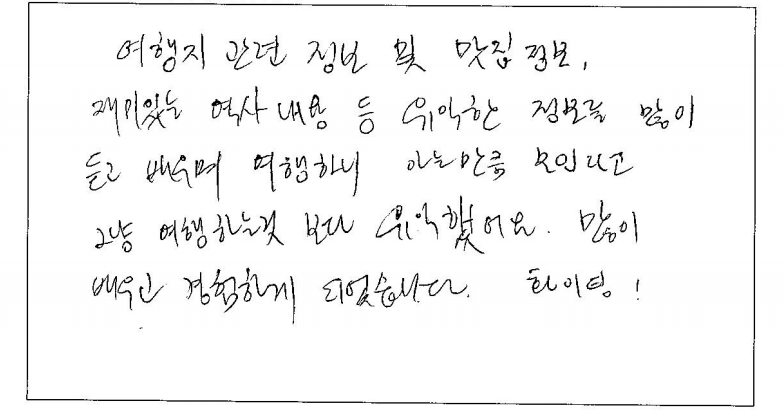 여행지 관련 정보 및 맛집 정보,
재미있는 역사 내용 등 유익한 정보를 많이
듣고 배우며 여행하니 아는만큼 보인다고
그냥 여행하는것 보다 유익했어요. 많이
배우고 경험하게 되었습니다. 화이팅!